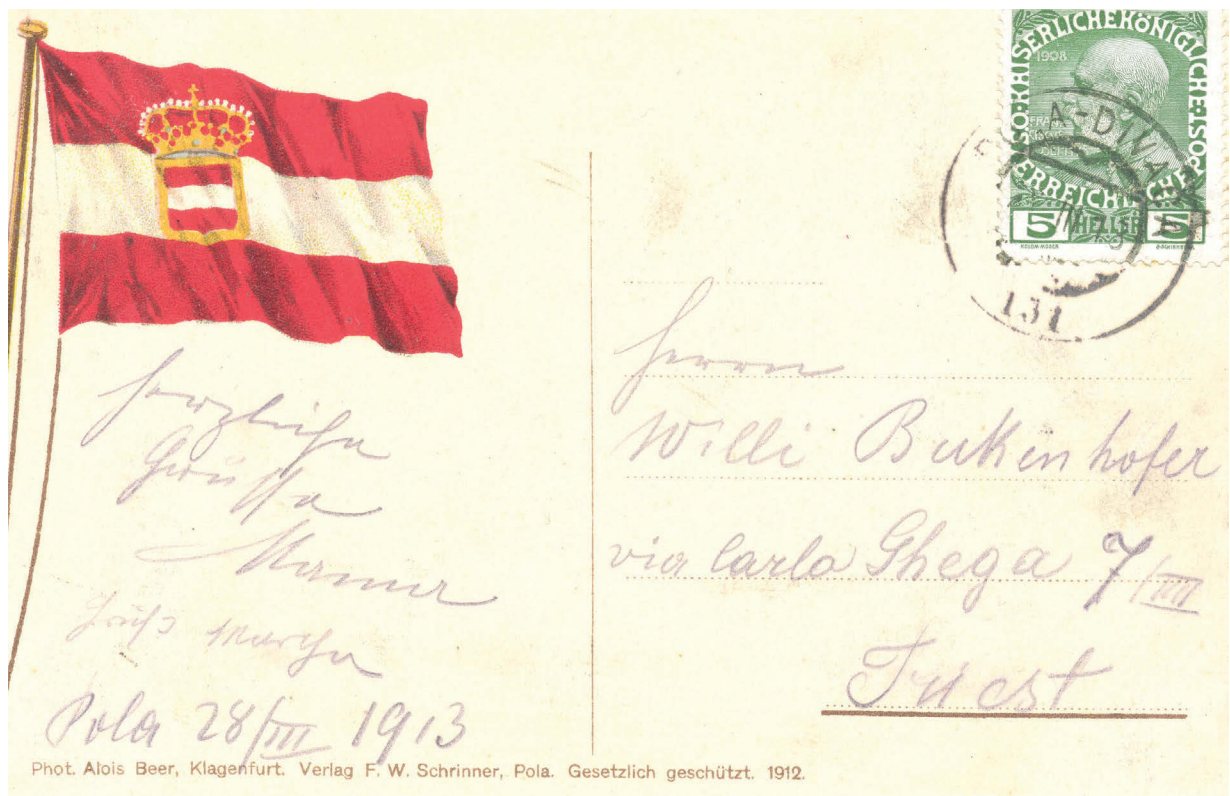 KAISERLICHEKÖNIGLICHE
ÖSTERREICHISCHE POST
1908
5 HELLER 5
131
Herzliche
Grüsse
Mama
Gruß
Pola 28/III 1913
Herrn
Willi Bukenhofer
via Carlo Ghega 7/III
Triest
Phot. Alois Beer, Klagenfurt. Verlag F. W. Schrinner, Pola. Gesetzlich geschützt. 1912.